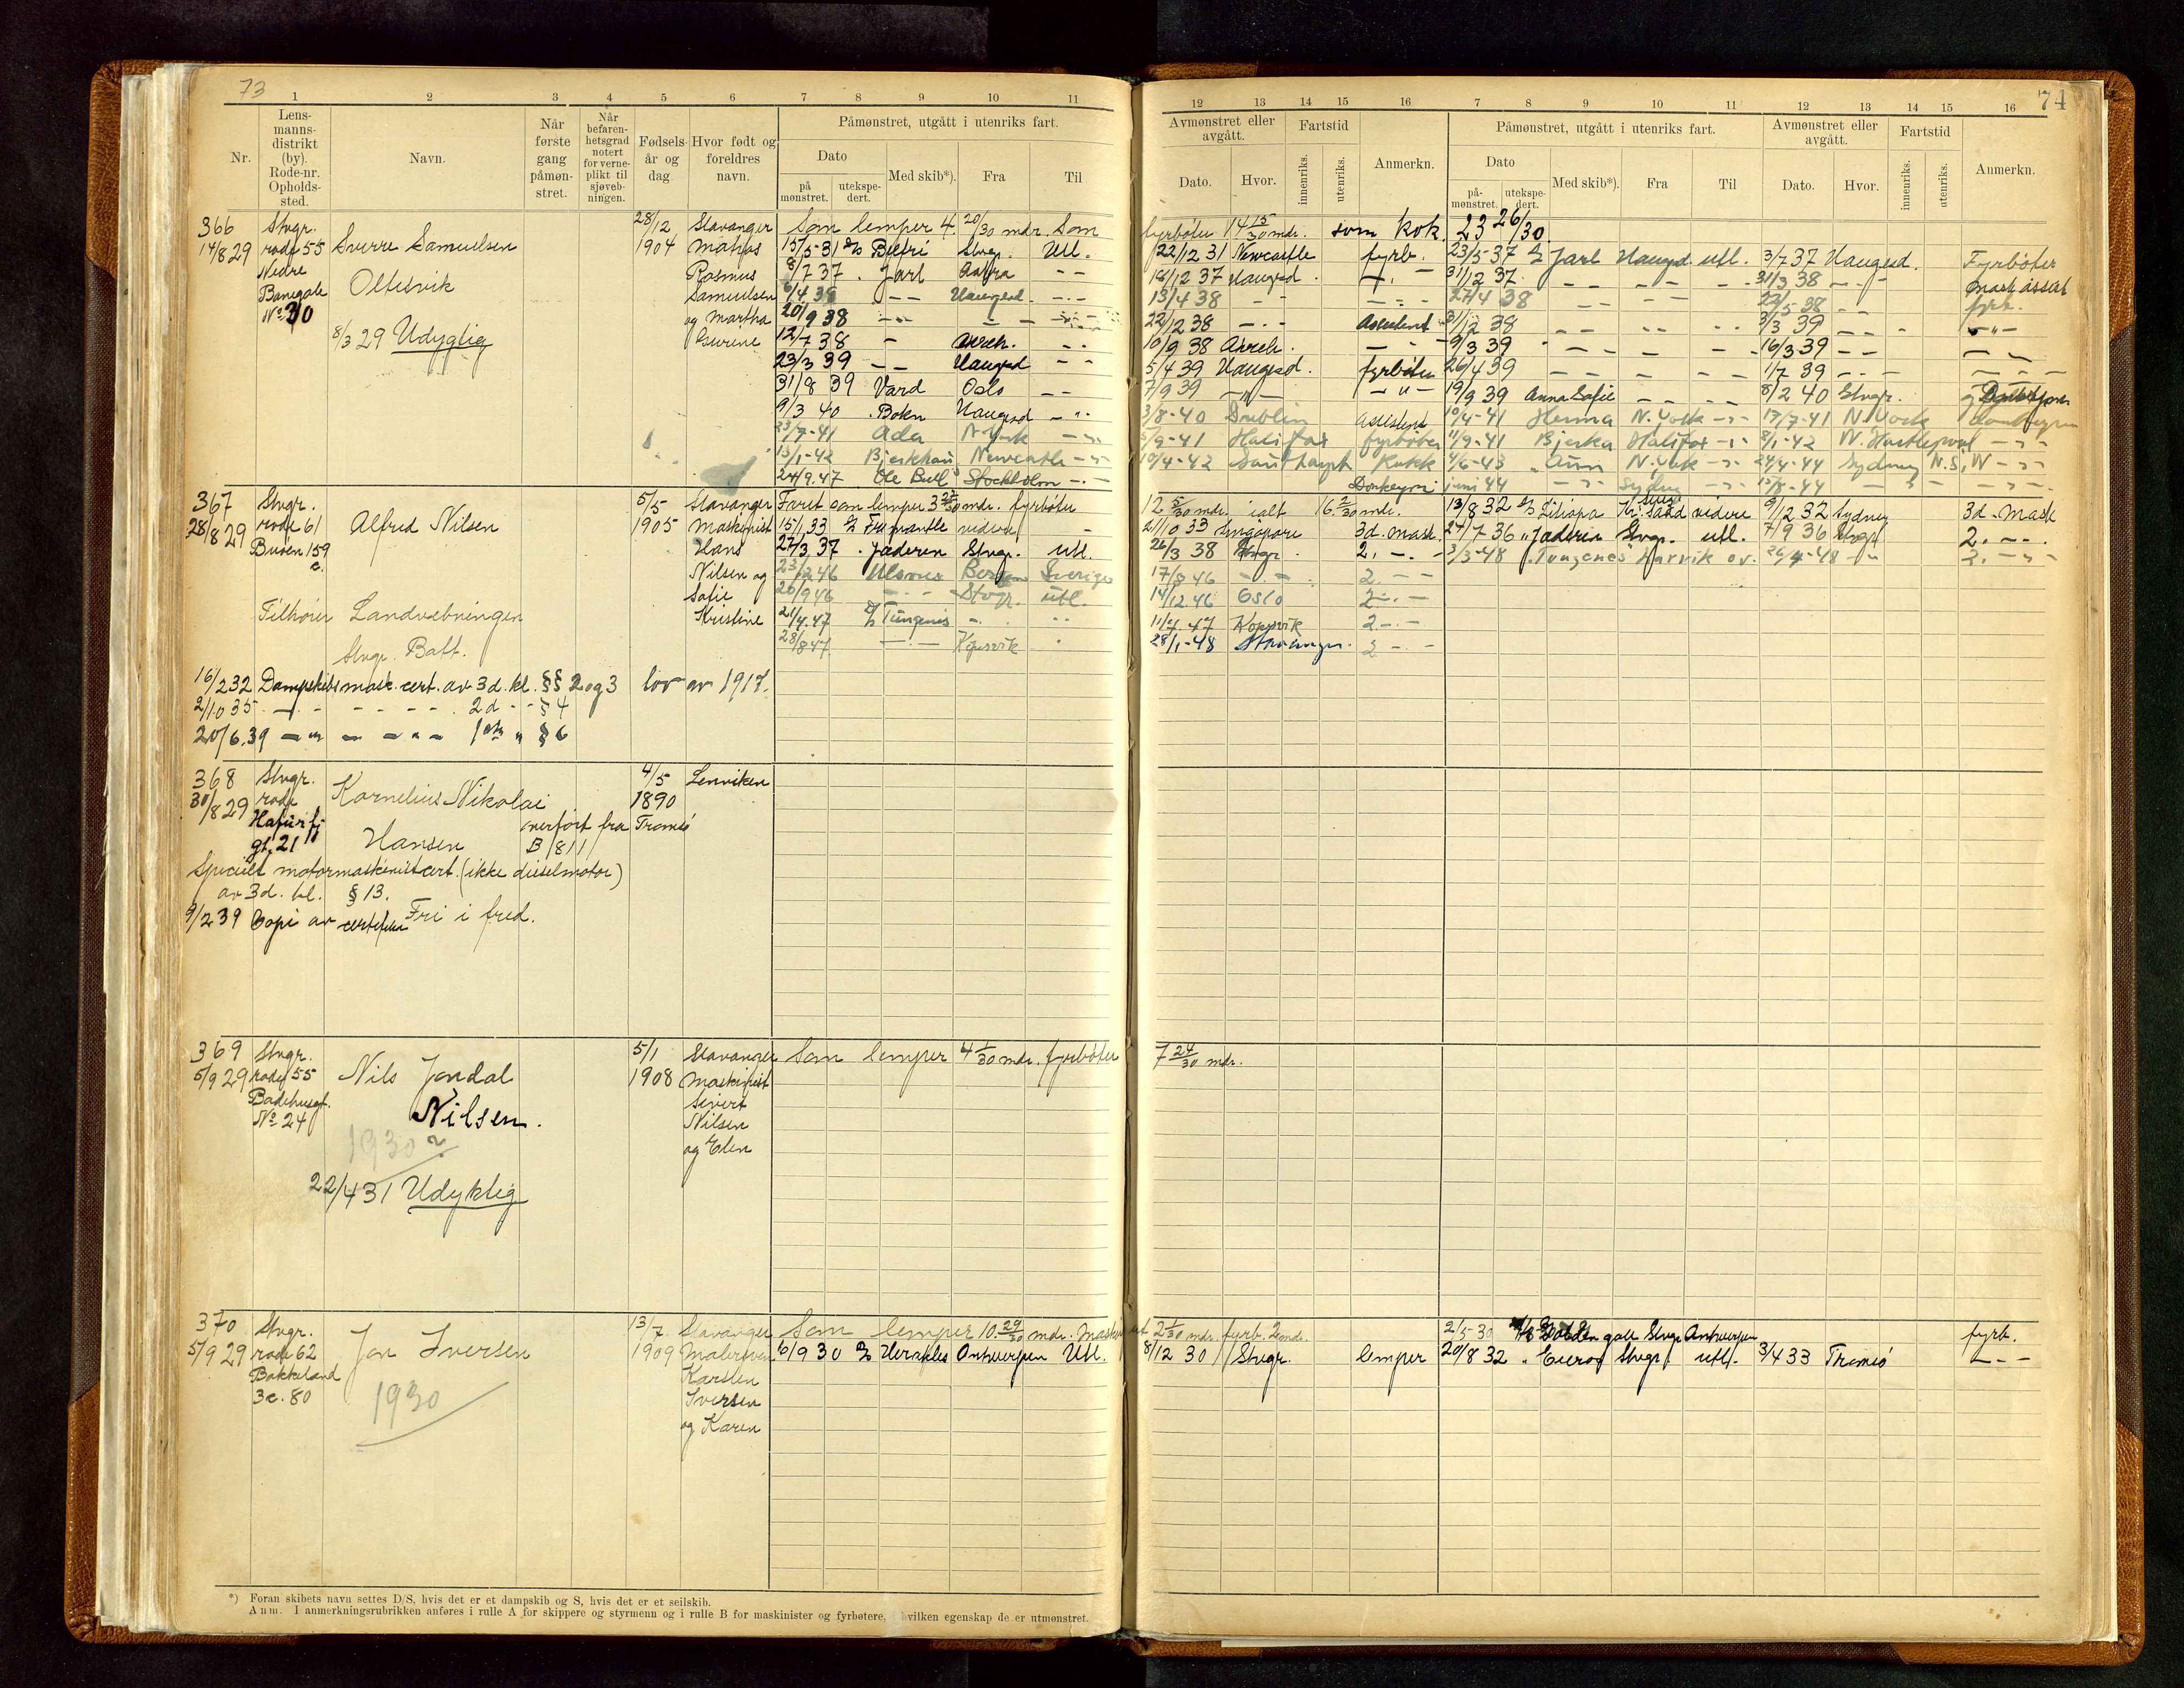 73
74
1 2 3 4 5 6 7 8 9 10 11
12 13 14 15 16 7 8 9 10 11 12 13 14 15 16
Nr.
Lens-
manns-
distrikt
(by).
Rode-nr.
Opholds-
sted.
Navn.
Når
første
gang
påmøn-
stret.
Når
befaren-
hetsgrad
notert
for verne-
plikt til
sjøveb-
ningen.
Fødsels-
år og
dag
Hvor født og
foreldres
navn.
Påmønstret, utgått i utenriks fart.
Dato
på
mønstret.
utekspe-
dert.
Med skib*).
Fra
Til
Avmønstret eller
avgått.
Dato.
Hvor.
Fartstid
innenriks.
utenriks.
Anmerkn.
Påmønstret, utgått i utenriks fart.
Dato
på-
mønstret.
utekspe-
dert.
Med skib*).
Fra
Til
Avmønstret eller
avgått.
Dato.
Hvor.
Fartstid
innenriks.
utenriks.
Anmerkn.
366
14/8 29
Stvgr.
rode 55
Nedre
Banegate
No 30
Sverre Samuelsen
Oltesvik
8/3 29 Udygtig
28/12
1904
Stavanger
Matros
Rasmus
Samuelsen
og Martha
Gurine
Som lemper 4. 20/30 mdr. Som fyrbøter 14 15/30 mdr. som kok 23 26/30
15/5-31 D/S Stvgr. Utl. 22/12 31 Newcastle fyrb. 23/5-37 D/S Jarl Haugsd utl. 3/7 37 Haugesd. Fyrbøter
8/7 37 . Jarl - - 18/12 37 Haugesd. 31/12 37. 31/3 38 Mask assist
38 - - Haugesd - - 13/4 38 - - 27/4 38 fyrb.
20/9 38 22/12 38 - - Assistent 31/12 38 3/3 39
12/7 38 - 10/9 38 9/3 39 16/3 39
23/3 39 - - Haugesd - - 5/4 39 Haugesd. fyrbøter 26/4 39 1/7 39
31/8 39 Vard Oslo - - 7/9 39 19/9 39 Anna Sofie 8/2 40 Stvgr.
9/3 40 . Bokn Haugesd 3/8-40 Dublin Assistent 10/4-41 Herma N. York 17/7-41 N. York
23/7-41 Ada N-York 5/9-41 Halifax fyrbøter 11/9-41 Bjerka Halifax 8/1-42 W. Hartlepool
13/1-42 Bjerkhaug Newcastle 10/4-42 Southampt Kokk 4/6-43 N. York 24/4-44 Sydney N.S.W
24/9.47 Ole Bull Stockholm Donkeym juni 44 Sydney
367
28/8 29
Stvgr.
rode 61
Buøen 159
c.
Alfred Nilsen
5/5
1905
Stavanger
Maskinist
Hans
Nilsen og
Sofie
Kristine
Tilhører Landvebningen
Stvgr. Batt.
Faret som lemper 3 mdr. fyrbøter 12 5/30 mdr. ialt 16 2/30 mdr. 13/8 32 D/S Kr. sand videre 9/12 32 Sydney 3d. Mask
15/1 33 D/S Fremantle videre 21/10 33 Singapore 3d. mask. 27/7 36 „Jæderen Stvgr. utl. 7/9 36 Stvgr. 2. - -
27/3 37 . Jæderen Stvgr. utl. 26/3 38 Stvgr. 2. - - 3/3-48 „Tungenes" Narvik o.v. 26/4-48 2.
23/2 46 Ulsnes Bergen Sverige 17/8 46 - - 2. - -
20/9 46 - - Stvgr. utl. 14/12.46 Oslo 2 - -
21/4.47 D/S Tungenes 11/7.47 Kopervik 2 - -
28/8 47 - - Kopervik 28/1-48 Stavanger. 2 - -
16/2 32 Dampskibsmask. cert. av 3d. kl. §§ 2 og 3 lov av 1917.
2/10 35 - - - - - 2d - - § 4
20/6.39 - - - - - 1ste „ § 6
368
30/8 29
Stvgr.
rode
gt. 21
Kornelius Nikolai
Hansen
overført fra Tromsø
B 1811
4/5
1890
Lenviken
Specielt motormaskinistcert. (ikke dieselmotor)
av 3d. kl. § 13.
9/2 39 Copi av certifikat Fri i fred.
369
5/9 29
Stvgr.
rode 55
Badehusgt.
No 24
Nils Jondal
Nilsen.
1930 ?
22/4 31 Udyktig
5/1
1908
Stavanger
Maskinist
Sivert
Nilsen
og Elen
Som lemper 4 1/30 mdr. fyrbøter 7 24/30 mdr.
370
5/9 29
Stvgr.
rode 62
Bakkeland
3c. 80
Jon Iversen
1930
13/7
1909
Stavanger
Malersvend
Karsten
Iversen
og Karen
Som lemper 10. 29/30 mdr. 2 1/30 mdr. fyrb. 2 mdr. 2/5-30 Stvgr. Antwerpen fyrb.
6/9 30 D/S Herakles Antwerpen Utl. 8/12 30 Stvgr. lemper 20/8 32 . Stvgr. utl. 3/4 33 Tromsø - -
*) Foran skibets navn settes D/S, hvis det er et dampskib og S, hvis det er et seilskib.
Anm. I anmerkningsrubrikken anføres i rulle A for skippere og styrmenn og i rulle B for maskinister og fyrbøtere, hvilken egenskap de er utmønstret.